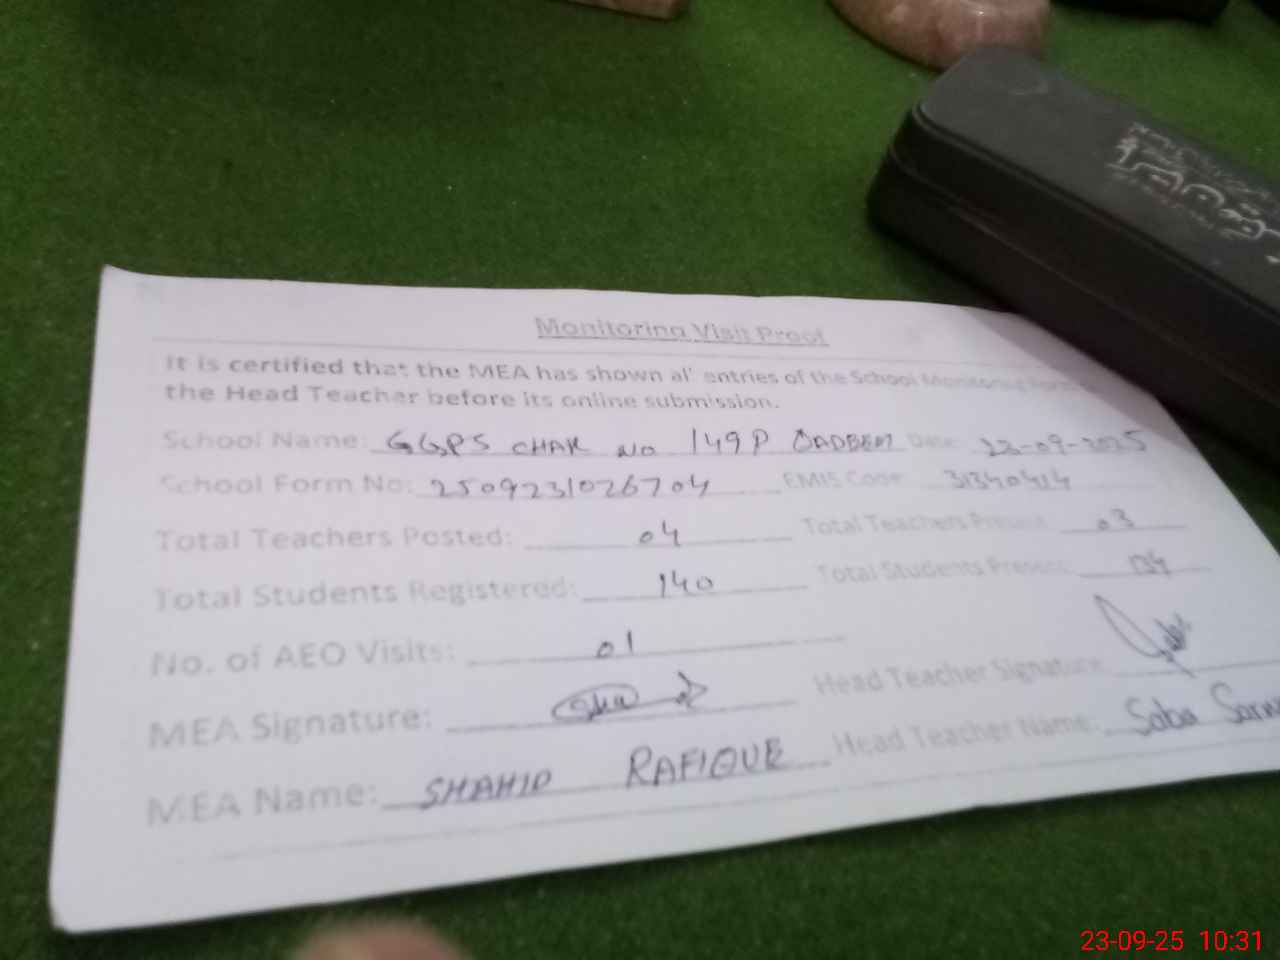 Monitoring Visit Proof
It is certified that the MEA has shown all entries of the School Monitoring Form to
the Head Teacher before its online submission.
School Name: GGPS CHAK NO 149P Date: 23-09-2025
School Form No: 2509231026704 EMIS Code: 31340414
Total Teachers Posted: 04 Total Teachers Present: 03
Total Students Registered: 140 Total Students Present:
No. of AEO Visits: 01
MEA Signature: Head Teacher Signature:
MEA Name: SHAHID RAFIQUE Head Teacher Name: Saba
23-09-25 10:31